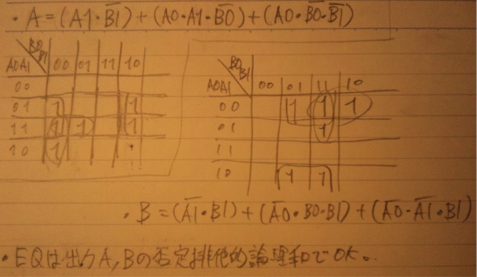 ・A=(A1・B̅1̅)+(A0・A1・B̅0̅)+(A0・B̅0̅・B̅1̅)
B0B1
A0A1 00 01 11 10
00
01 1 1
11 1 1 1
10 1
B0B1
A0A1 00 01 11 10
00 1 1 1
01 1
11
10 1 1
・B=(A̅1̅・B1)+(A̅0̅・B0・B1)+(A̅0̅・A̅1̅・B1)
・EQは出力A,Bの否定排他的論理和でOK。